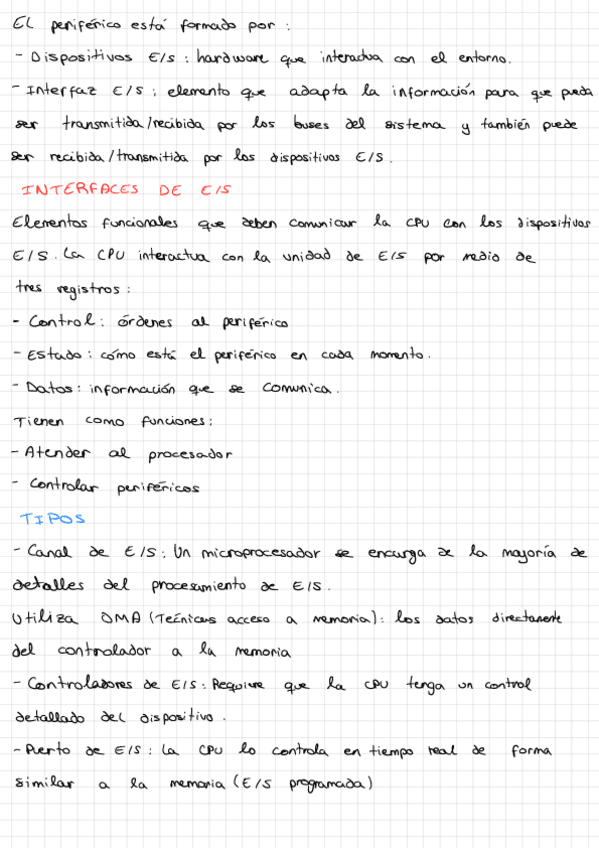 El periférico está formado por :
- Dispositivos E/S : hardware que interactua con el entorno.
- Interfaz E/S : elemento que adapta la información para que pueda
ser transmitida/recibida por los buses del sistema y también puede
ser recibida/transmitida por los dispositivos E/S.
INTERFACES DE E/S
Elementos funcionales que deben comunicar la CPU con los dispositivos
E/S. La CPU interactua con la unidad de E/S por medio de
tres registros :
- Control : órdenes al periférico
- Estado : cómo está el periférico en cada momento.
- Datos : información que se comunica.
Tienen como funciones :
- Atender al procesador
- Controlar periféricos
TIPOS
- Canal de E/S : Un microprocesador se encarga de la mayoría de
detalles del procesamiento de E/S.
Utiliza DMA (Técnicas acceso a memoria) : los datos directamente
del controlador a la memoria
- Controladores de E/S : Requiere que la CPU tenga un control
detallado del dispositivo.
- Puerto de E/S : La CPU lo controla en tiempo real de forma
similar a la memoria (E/S programada)